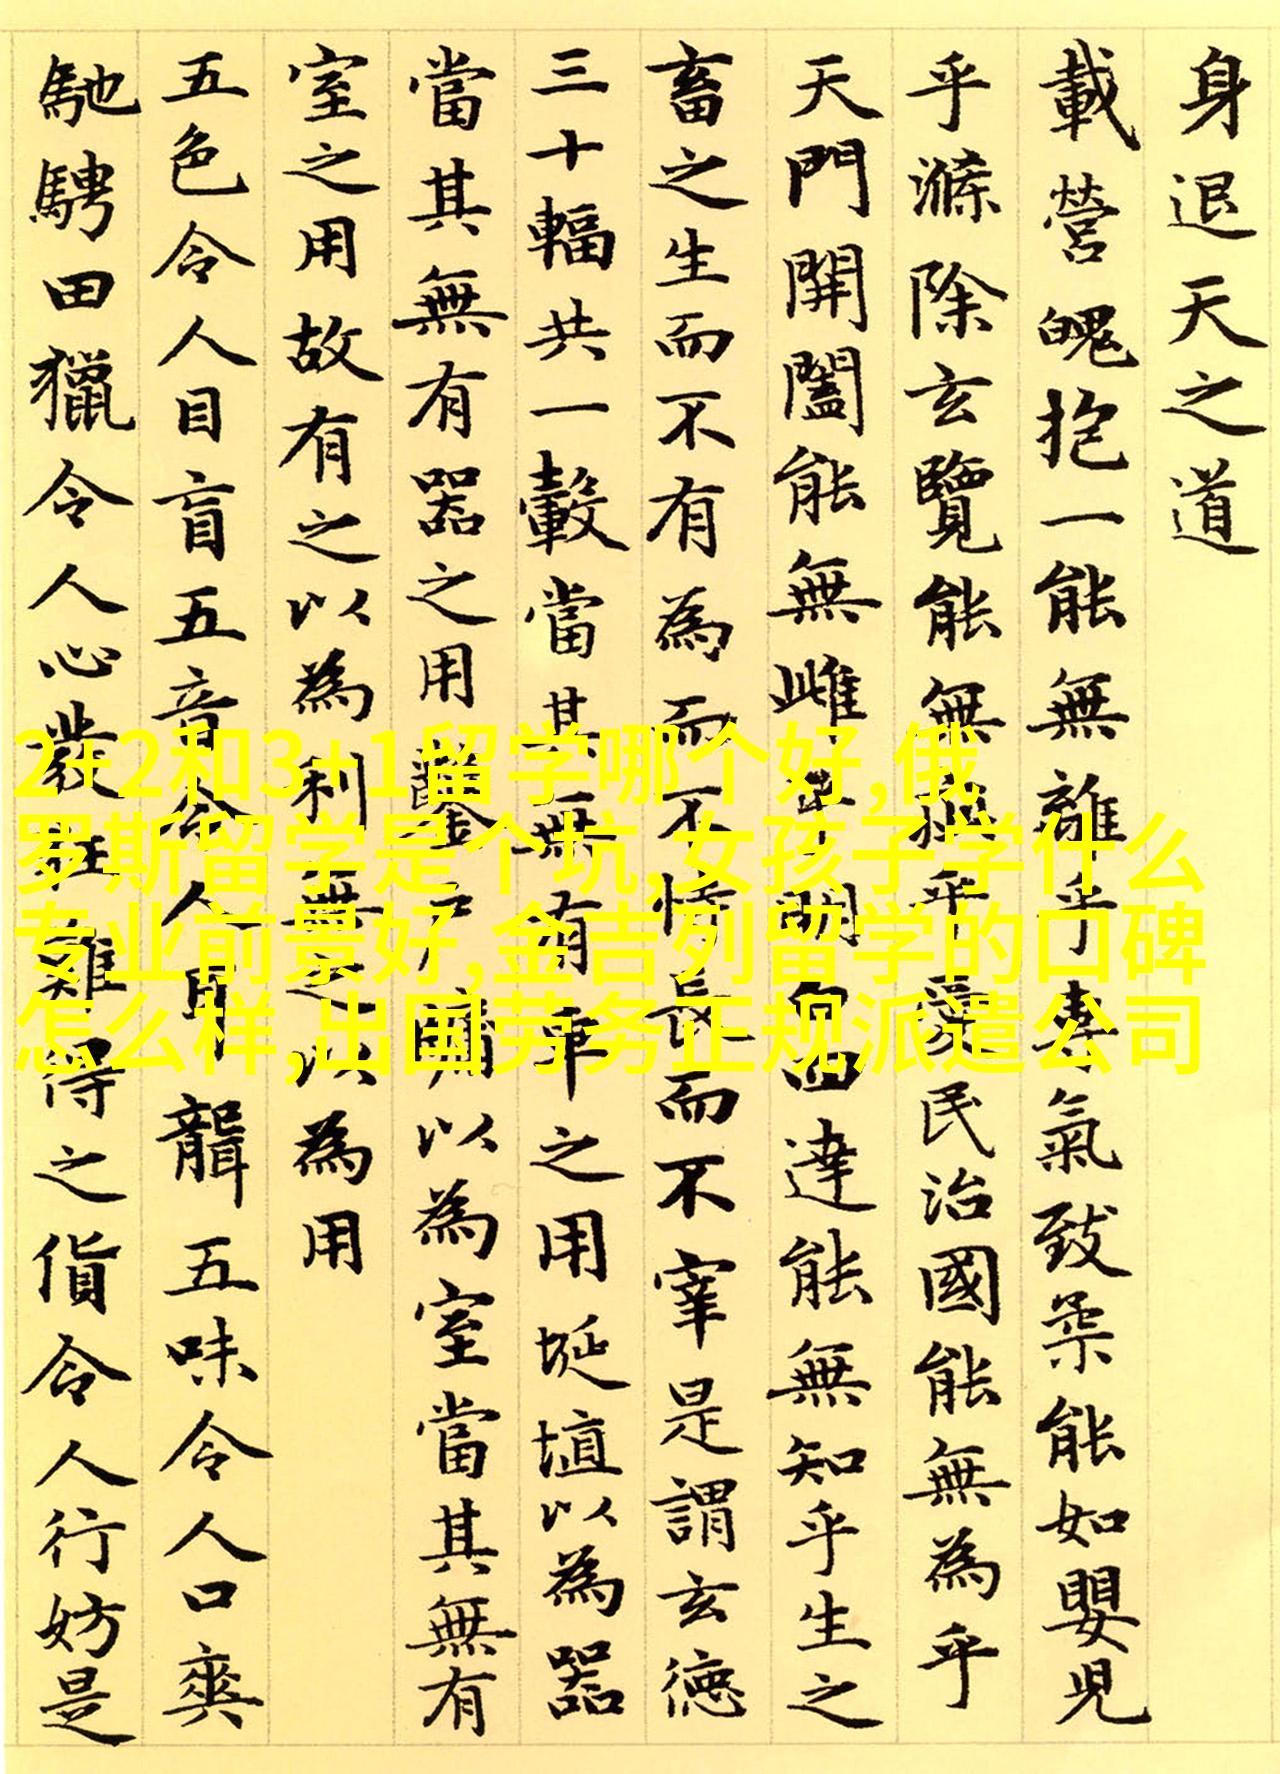 身退天之道
載營魄抱一能無離乎專氣致柔能如嬰児
乎滌除玄覽能無疵乎愛民治國能無為乎
天門開闔能無雌乎明白四達能無知乎生之
畜之生而不有為而不恃長而不宰是謂玄德
三十輻共一轂當其無有車之用埏埴以為器
當其無有器之用鑿戶牖以為室當其無有
室之用故有之以為利無之以為用
五色令人目盲五音令人耳聾五味令人口爽
馳騁田獵令人心發狂難得之貨令人行妨是
2+2和3+1留学哪个好,俄
罗斯留学是个坑,女孩子学什么
专业前景好,金吉列留学的口碑
怎么样,出国劳务正规派遣公司